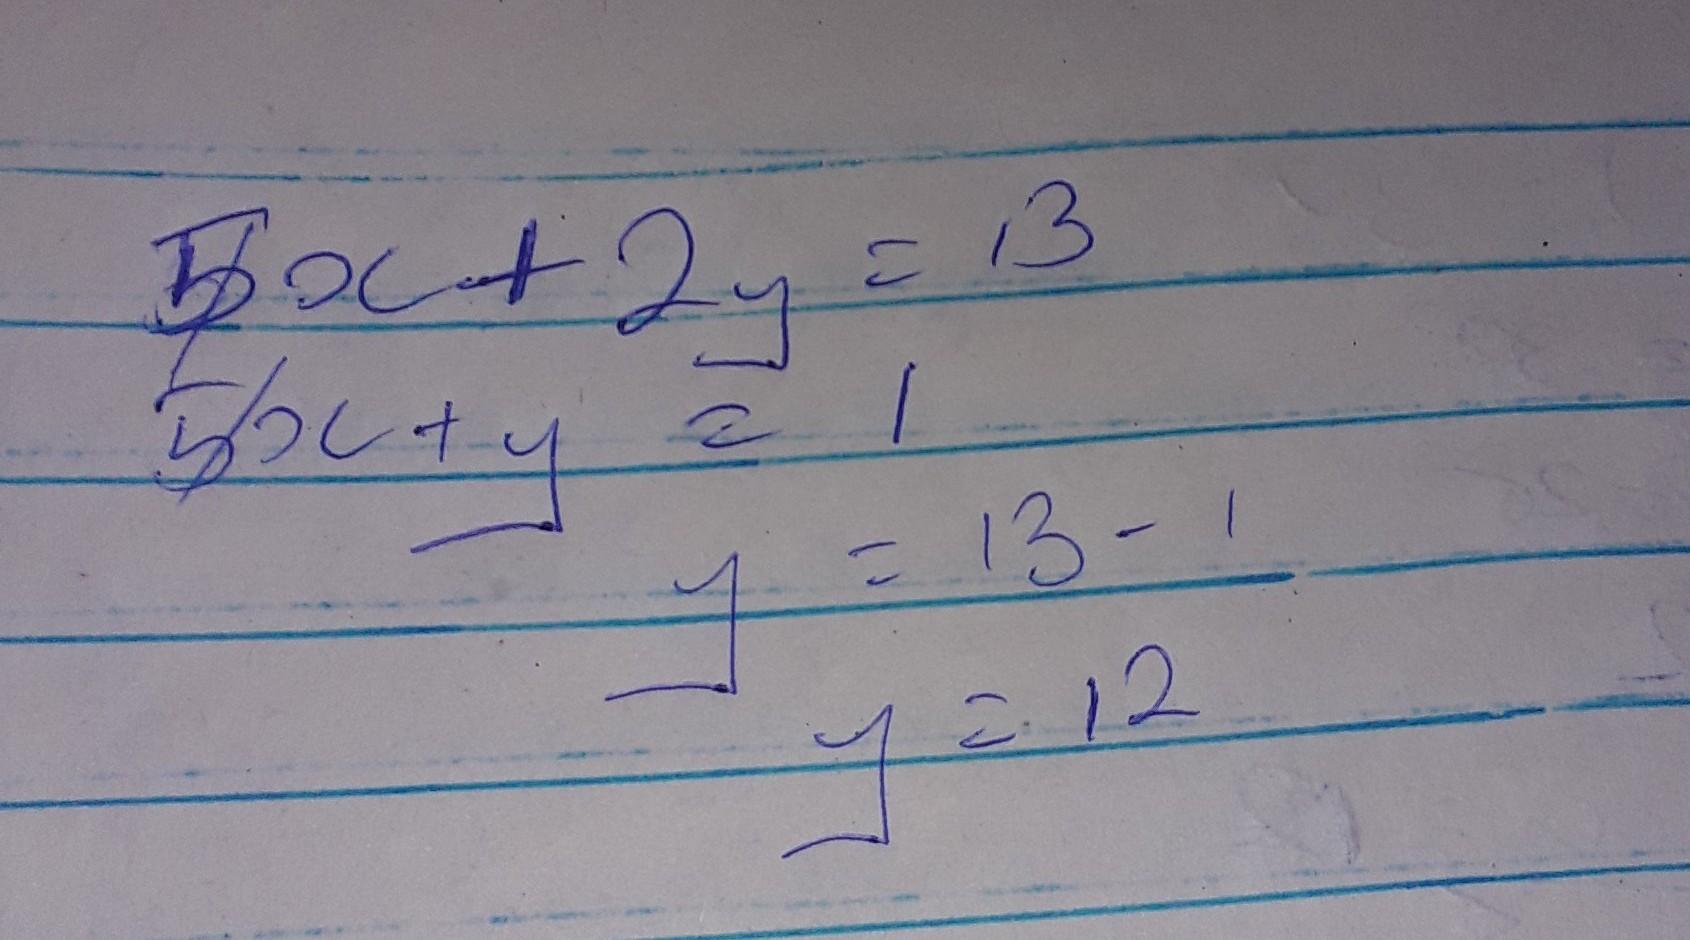 5x + 2y = 13
5x + y = 1
y = 13 - 1
y = 12